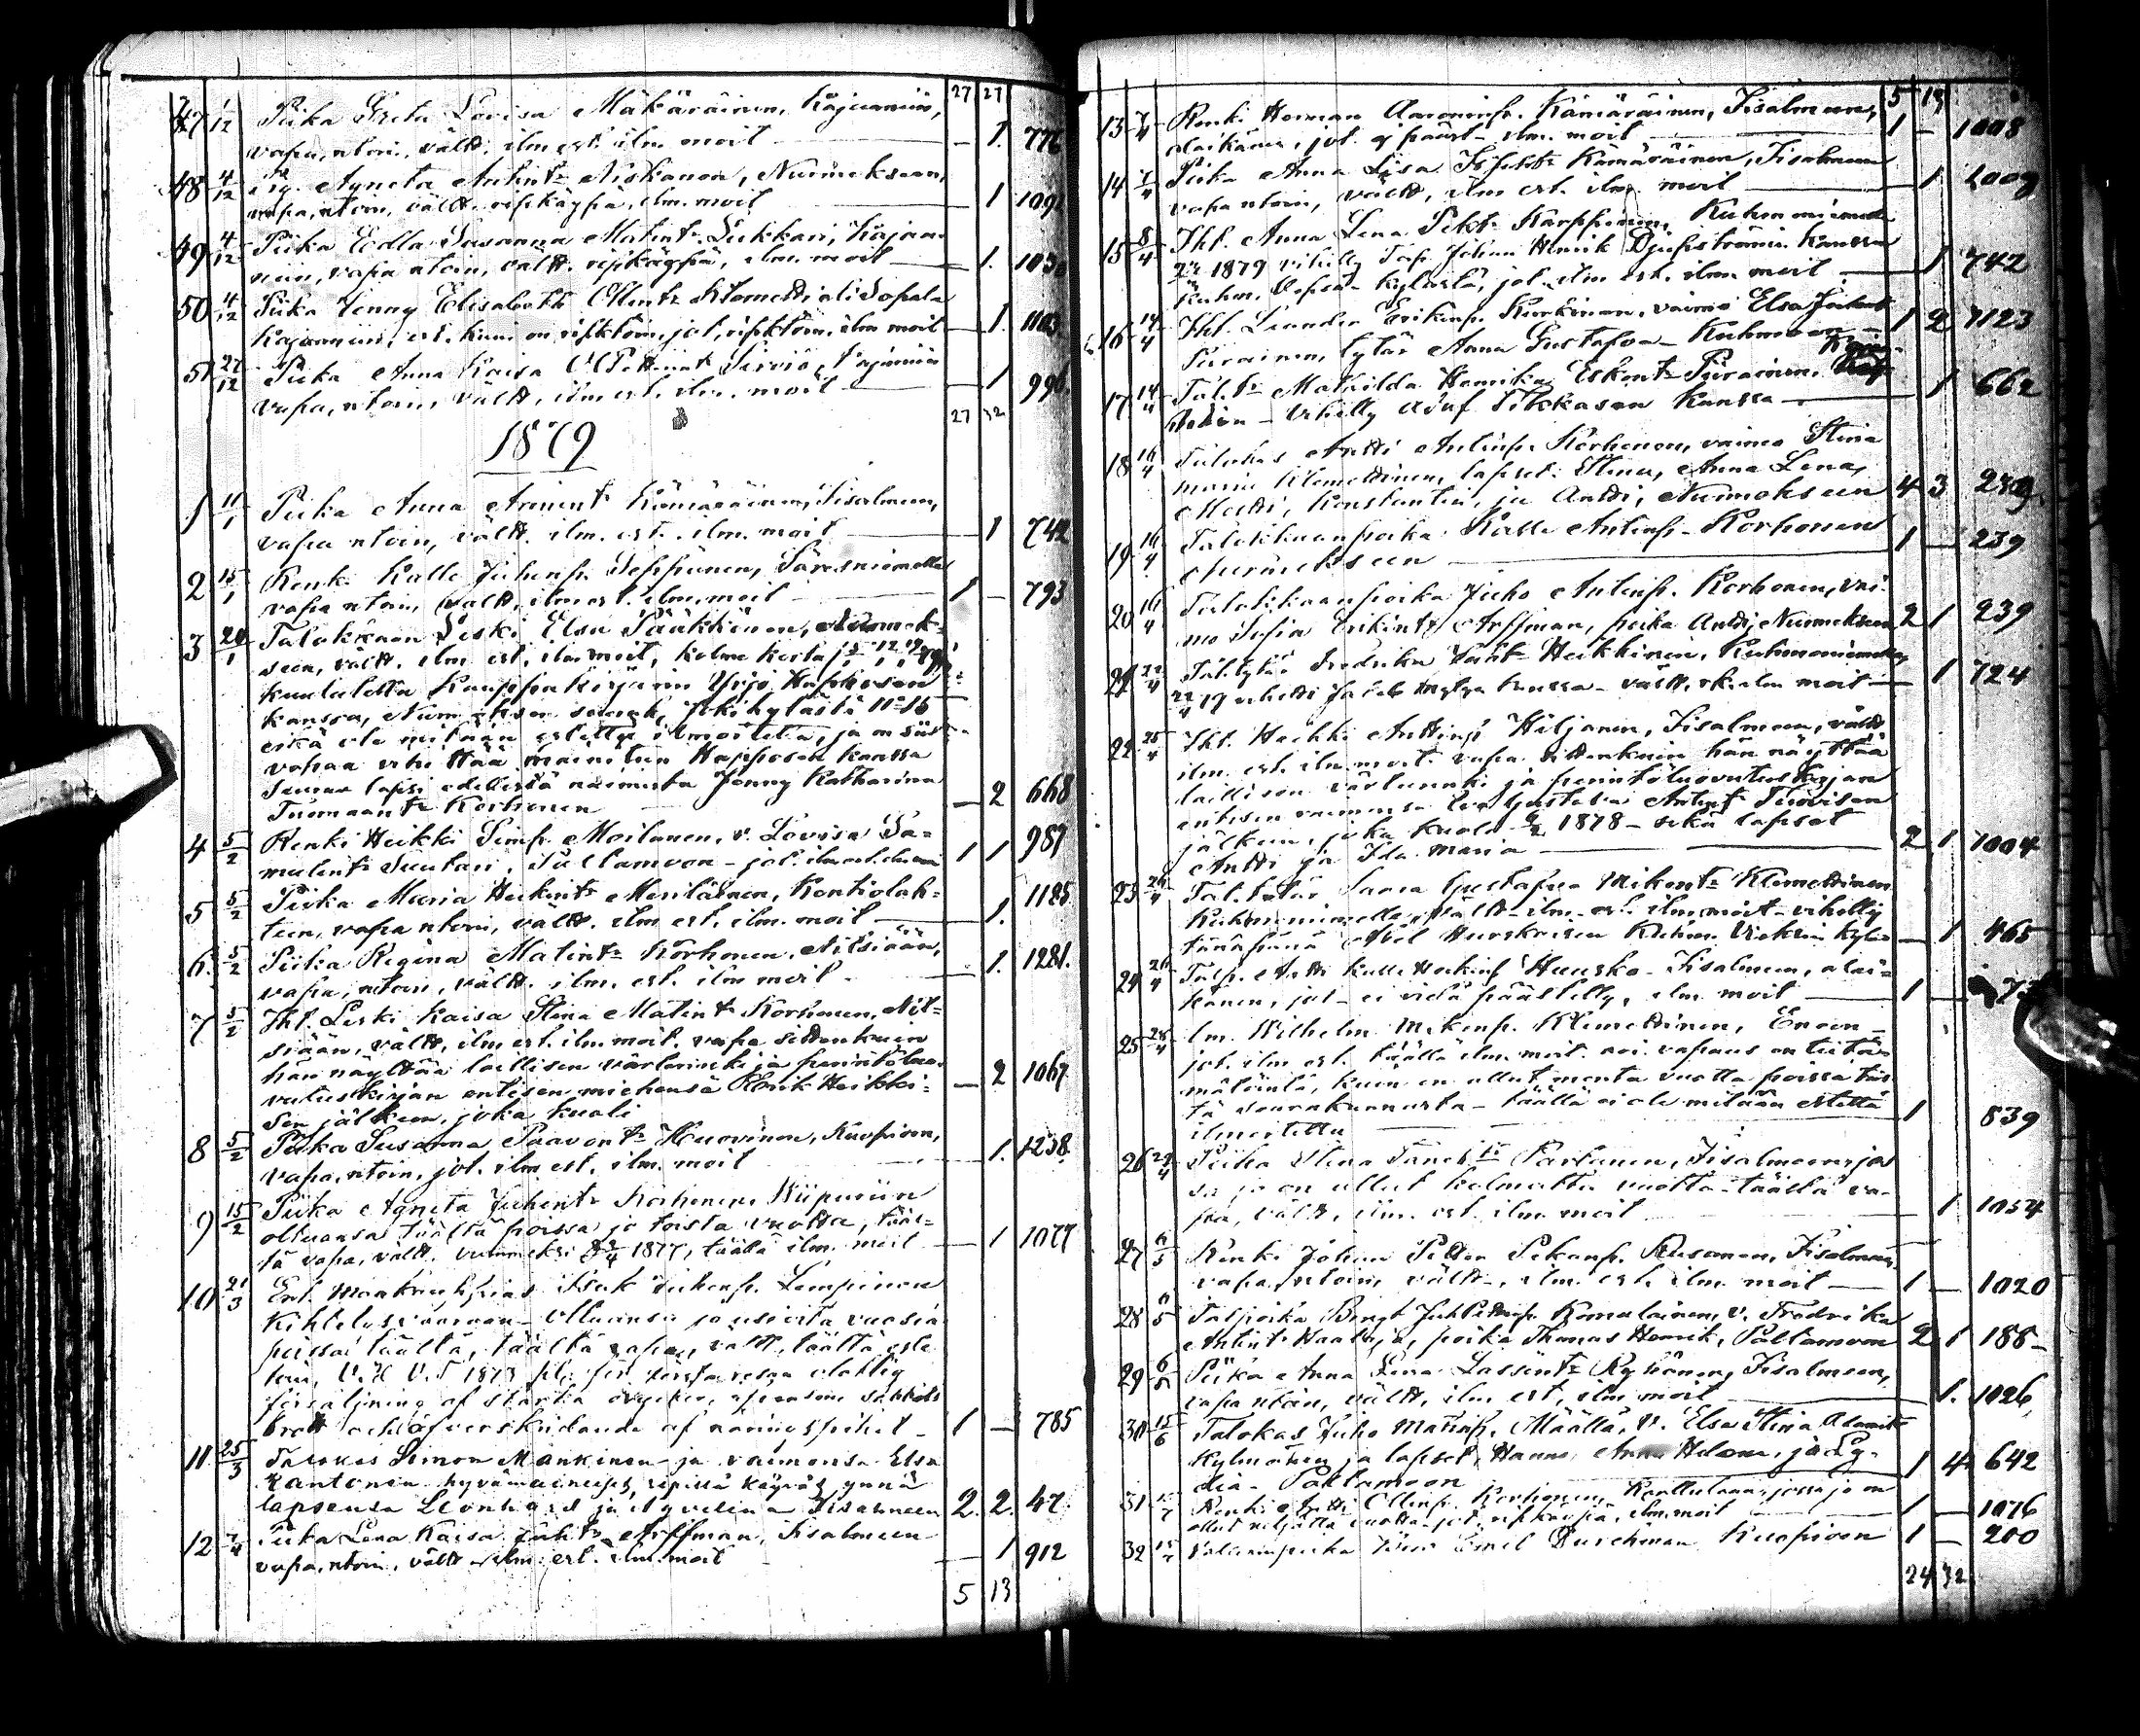 27 27
47 1/12 Piika Greta Lovisa Mäkäräinen, Kajaaniin,
vapa, ntoin, vältt. ilm est. ilm. moit — 1. 776
48 4/12 Agneta Antint: Niskanen, Nurmekseen,
vapa, ntoin, vältt. ripikäypä, ilm. moit — 1 109
49 4/12 Piika Edla Susanna Matint: Lukkari, Kajaa-
niin, vapa ntoin, vältt. ripikäypä, ilm. moit — 1. 103
50 4/12 Piika Jenny Elisabeth Ollint:
Kajaaniin, est. kuni on ripiktöin, jot, ripiktöin, ilm moit — 1. 1103
51 27/12 Piika Anna Kaisa Sirviö, Kajaaniin
vapa, ntoin, vältt, ilm est. ilm. moit — 1 996.
27 32
1879
1 11/1 Piika Anna Kämäräinen, Iisalmeen,
vapa ntoin, vältt. ilm. est. ilm. moit — 1 742
2 15/1 Renki Kalle Juhinp. Seppänen, Säresniemelle
vapa ntoin, vältt, ilm est. ilm. moit 1 — 793
3 20/1 Talokkaan Leski Elsa Pääkkönen, Nurmek-
seen, vältt. ilm est, ilm moit, kolme kerta
kuulutettu Kauppakirjurin Yrjö Happosen
kanssa, Nurmeksen seurak, Jokikylästä
eikä ole mitään estettä ilmoitettu, ja on siis
vapaa vihittää mainitun Happosen kanssa
Seuraa lapsi edellistä naimista Jenny Katharina
Tuomaant: Korhonen — 2 668
4 5/2 Renki Heikki Simp. Moilanen, v. Lovisa Sa-
mulint: Suutari, Paltamoon — jot. ilm est. ilm moi 1 1 987
5 5/2 Piika Maria Heikint: Meriläinen, Kontiolah-
teen, vapa ntoin, vältt. ilm est. ilm. moit — 1. 1125
6. 5/2 Piika Regina Matint: Korhonen, Nilsiään,
vapa, ntoin, vältt. ilm. est. ilm moit — 1. 1281.
7 5/2 Iht. Leski Kaisa Stina Matint: Korhonen, Nil-
siään, vältt, ilm, est. ilm. moit. vapa sittenkuin
hän näyttää laillisen värlarinki ja perintöluo-
vutuskirjan entisen miehensä Henrik Heikki- — 2 1067
sen jälkeen, joka kuoli
8 5/2 Piika Susanna Paavont: Huovinen, Kuopioon,
vapa, ntoin, jot. ilm est. ilm. moit — 1. 1238.
9 15/2 Piika Agneta Juhint: Korhonen, Wiipuriin
oltuansa täältä poissa jo toista vuotta, tääl-
tä vapa, vältt. 1877, täältä ilm. moit — 1 1077
10 21/3 Isak Juhonp. Lempinen
Kihtelysvaaraan — Oltuansa jo useoita vuosia
poissa täältä, täältä vapaa, vältt, täältä este
tön, V. H. V. T 1873 för olaglig
försäljning af starka drycker,
brott och öfverskridande af näringsfrihet — 1 — 785
11 25/3 Talokas Simon Mankinen ja vaimonsa Elsa
Kantonen hyvämaineiset, ripillä käyvät ynnä
lapsensa Leonhard ja Agvelina Iisalmeen 2. 2. 47.
12 7/4 Piika Lena Kaisa Juht: Arffman, Iisalmeen
vapa, ntoin, vältt, ilm est. ilm. moit — 1 912
5 13
5 13
13 7/4 Renki Herman Aaroninp. Kämäräinen, Iisalmeen,
alaikänen, jot. ei päästt— ilm. moit 1 — 1008
14 7/4 Piika Anna Lisa Kämäräinen, Iisalmeen
vapa ntoin, vältt, ilm est. ilm. moit — 1 1008
15 8/4 Iht. Anna Lena Pekt: Karppinen, Kuhmoniemelle
1879 vihitty Johan Henrik kanssa
Kuhm. kylästä, jot. ilm est. ilm. moit — 1 742
16 14/4 Iht. Leander Erikinp. Kurkinen, vaimo Elsa
Piirainen, tytär Anna Gustafva — Kuhmoon — 1 2 1123
17 14/4 Tal.t: Mathilda Henrika Eskont: Piirainen,
— Vihitty Adolf Tikkasen kanssa — 1 662
18 16/4 Talokas Antti Antinp. Korhonen, vaimo Stina
Maria Klemettinen, lapset: Stina, Anna Lena,
Matti, Konstantin, ja Antti, Nurmekseen 4 3 239.
19 16/4 Talokkaanpoika Kalle Antinp. Korhonen
Nurmekseen 1 — 239
20 16/4 Talokkaanpoika Juho Antinp. Korhonen, vai-
mo Sofia Erikint: Arffman, poika Antti, Nurmekseen 2 1 239
21 22/4 Taltytär Fredrika Heikkinen, Kuhmoniemelle,
kanssa — vältt. rk. ilm moit — 1 724
22 25/4 Iht. Heikki Anttinp. Hiljanen, Iisalmeen, vältt
ilm. est. ilm moit. vapa sittenkuin hän näyttää
laillisen värlarinki ja perintöluovutuskirjan
entisen vaimonsa Eva Gustava Antint: Tuovisen
jälkeen, joka kuoli 1878 — sekä lapset
Antti ja Ida Maria — 2 1 1004
23 26/4 Tal.tytär Saara Gustafva Mikont: Klemettinen
Kuhmoniemelle, vältt — ilm — est. ilm, moit — vihitty
tänäpänä Abel Huuskosen Kuhm. Vieksin kyläs — 1 465
24 26/4 Talp. Antti Kalle Heikinp. Huusko — Iisalmeen, alai-
känen, jot — ei vielä päästetty, ilm. moit — 1 —
25 28/4 Im. Wilhelm Mikonp. Klemettinen, Enoon —
jot. ilm est. täältä ilm. moit. nai. vapaus on tietä-
mätöintä, kuin on ollut monta vuotta poissa täs-
tä seurakunnasta — täällä ei ole mitään estettä
ilmoitettu — 1 839
26 29/4 Piika Stina Partanen, Iisalmeen, jos
sa jo on ollut kolmatta vuotta — täältä va-
paa, vältt, ilm. est. ilm. moit — 1 1054
27 6/5 Renki Johan Petter Pekanp. Rusanen, Iisalmeen,
vapa, ntoin, vältt —, ilm. est. ilm. moit — 1 — 1020
28 6/5 Talpoika Bengt Komulainen, v. Fredrika
Antint: Haataja, poika Thomas Henrik, Paltamoon 2 1 188 —
29 6/5 Piika Anna Lena Lassint: Ryhänen, Iisalmeen,
vapa ntoin, vältt, ilm est, ilm. moit — 1. 1026,
30 15/6 Talokas Juho Matinp. Määttä, v. Elsa Stina Adamit:
Kylmänen ja lapset, Hanna, Anna Helena, ja Ly-
dia — Paltamoon 1 4 642
31 15/7 Renki Antti Ollinp. Korhonen, Karttulaan, jossa jo on
ollut neljättä vuotta — jot. ripikäypä, ilm. moit 1 — 1076
32 15/7 Emil Durchman Kuopioon 1 — 200
24 32